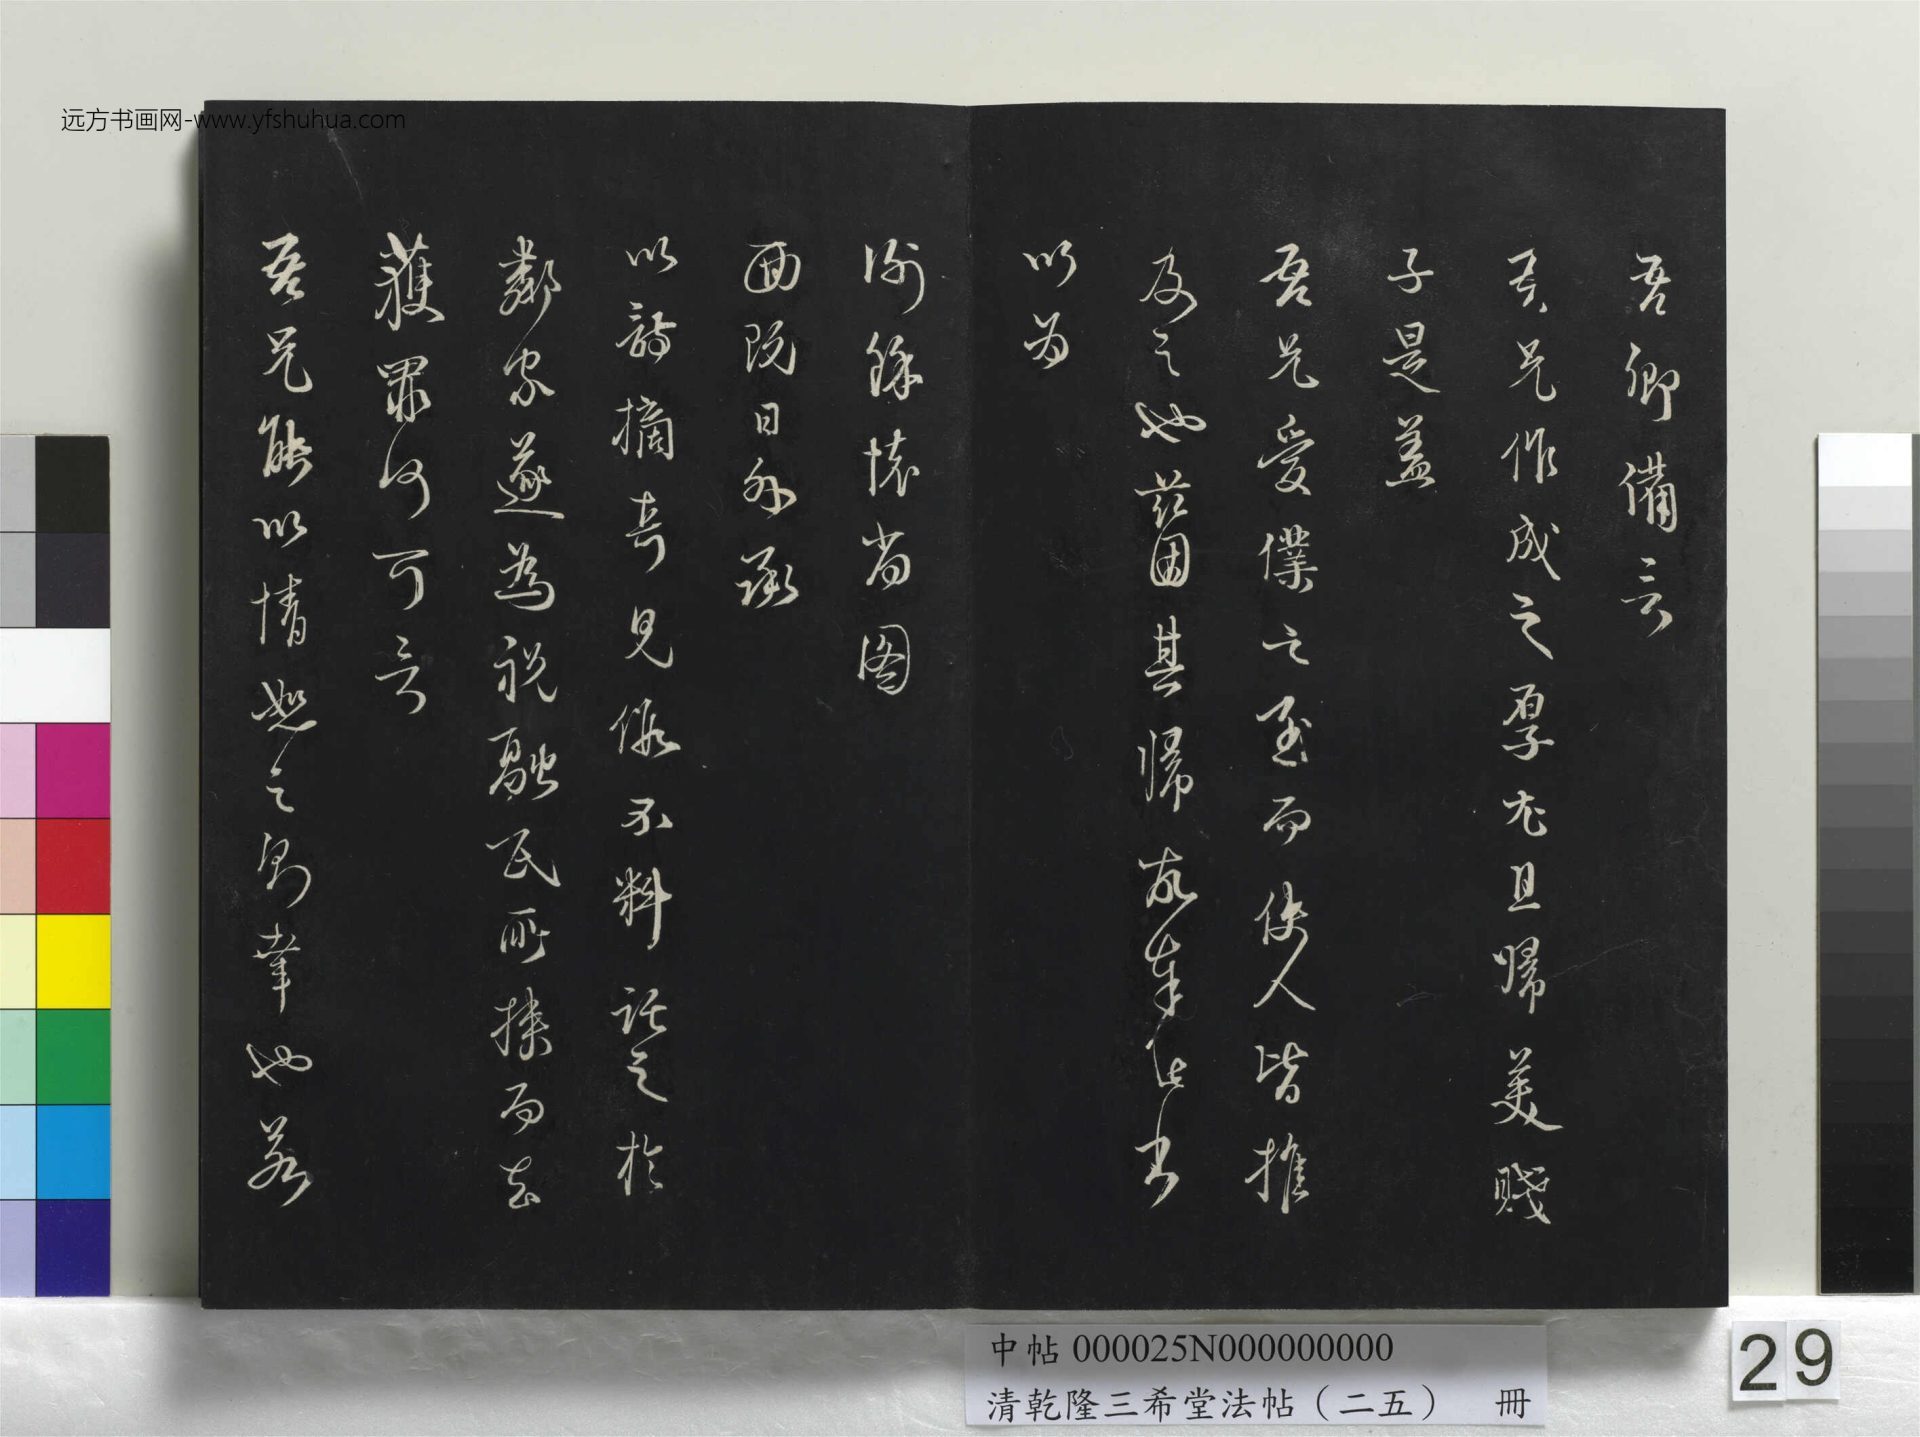 远方书画网-www.yfshuhua.com
吾卿備言
吾兄作成之厚尤且歸美賤
子是蓋
吾兄愛僕之至而使人皆推
及之也茲因其歸故奉此書
以为
謝餘懷尚图
面既日外承
以詩摘奇見假不料話之於
鄰家遂為祝融氏所操而去
獲罪何可言
吾兄能以情恕之則幸也若
中帖 000025N000000000
清乾隆三希堂法帖（二五） 冊
29